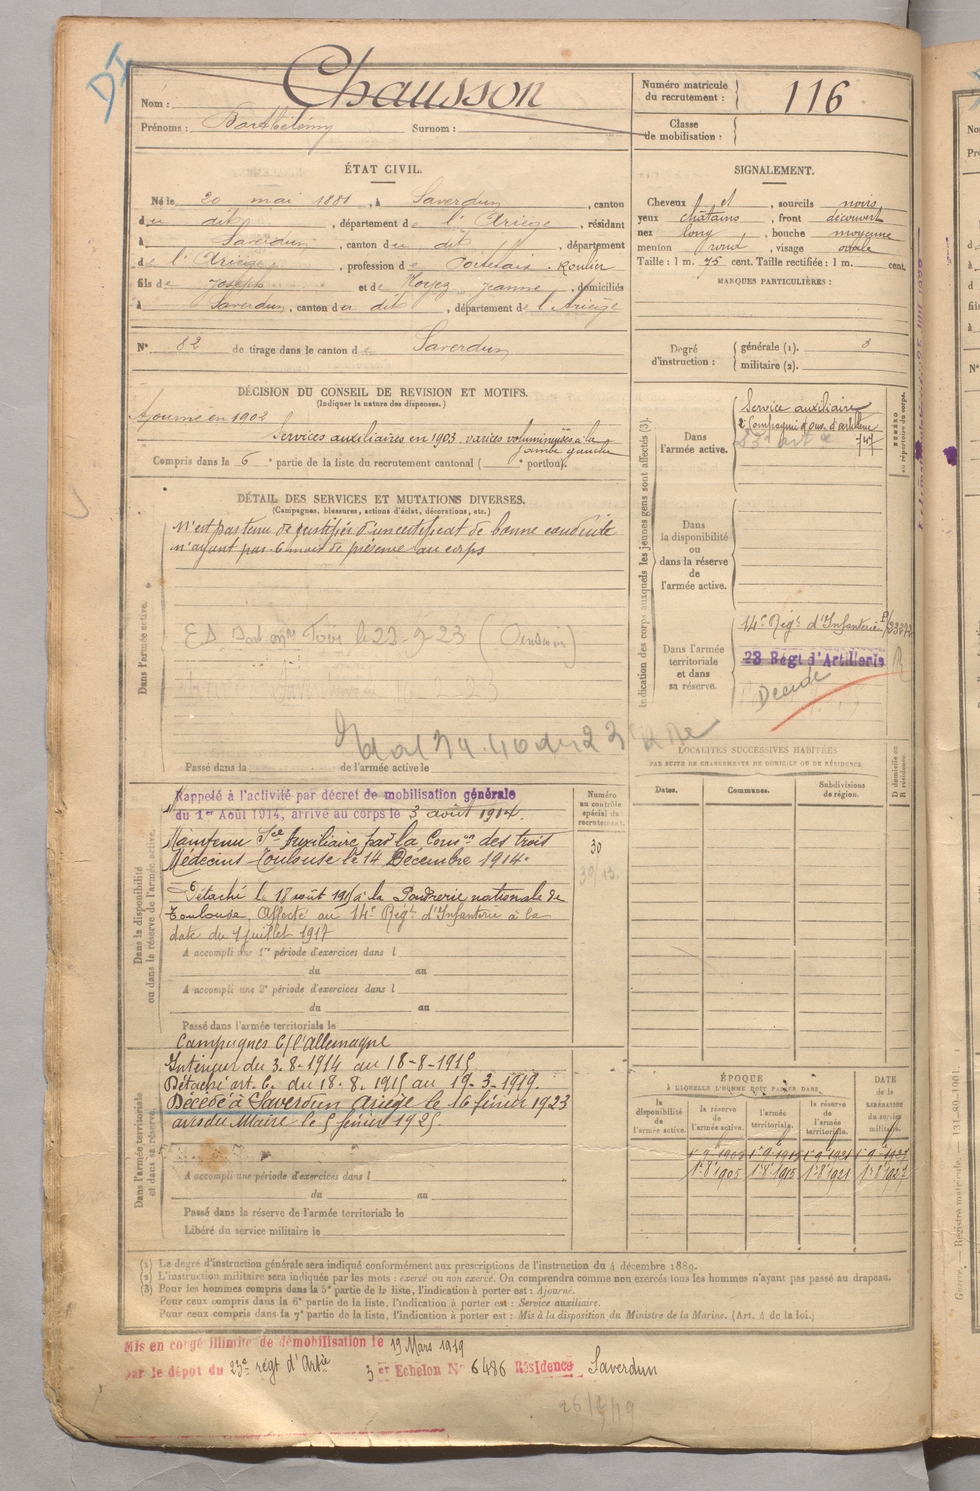 DI
Nom : Chausson
Prénoms : Barthélémy Surnom :
Numéro matricule du recrutement : 116
Classe de mobilisation :
ÉTAT CIVIL.
Né le 20 mai 1881, à Saverdun, canton
du dit, département de l'Ariège, résidant
à Saverdun, canton du dit, département
de l'Ariège, profession de Portefaix. Roulier
fils de Joseph et de Jeanne, domiciliés
à Saverdun, canton du dit, département de l'Ariège
N° 82 de tirage dans le canton de Saverdun
SIGNALEMENT.
Cheveux et, sourcils noirs
yeux châtains, front découvert
nez long, bouche moyenne
menton rond, visage ovale
Taille : 1 m. 75 cent. Taille rectifiée : 1 m. cent.
MARQUES PARTICULIÈRES :
Degré d'instruction : générale (1). 3
militaire (2).
DÉCISION DU CONSEIL DE REVISION ET MOTIFS.
(Indiquer la nature des dispenses.)
Ajourné en 1902
Services auxiliaires en 1903 varices volumineuses à la
jambe gauche
Compris dans la 6e partie de la liste du recrutement cantonal ( portion).
DÉTAIL DES SERVICES ET MUTATIONS DIVERSES.
(Campagnes, blessures, actions d'éclat, décorations, etc.)
Dans l'armée active.
N'est pas tenu de justifier d'un certificat de bonne conduite
n'ayant pas 6 mois de présence au corps
Passé dans la de l'armée active le
Indication des corps auxquels les jeunes gens sont affectés (3).
Dans l'armée active.
Service auxiliaire
2e Compagnie d'ouv. d'artillerie
NUMÉRO au répertoire du corps.
Dans la disponibilité ou dans la réserve de l'armée active.
Dans l'armée territoriale et dans sa réserve.
14e Régt d'Infanterie
23 Régt d'Artillerie
Décédé
LOCALITÉS SUCCESSIVES HABITÉES
PAR SUITE DE CHANGEMENTS DE DOMICILE OU DE RÉSIDENCE.
Dates. Communes. Subdivisions de région. D domicile ou R résidence.
Dans la disponibilité ou dans la réserve de l'armée active.
Numéro au contrôle spécial du recrutement.
30
Rappelé à l'activité par décret de mobilisation générale
du 1er Août 1914, arrivé au corps le 3 août 1914.
Maintenu Sce Auxiliaire par la Comon des trois
Médecins Toulouse le 14 Décembre 1914.
Détaché le 18 août 1915 à la Poudrerie nationale de
Toulouse. Affecté au 14e Régt d'Infanterie à la
date du 1 juillet 1917
A accompli une 1re période d'exercices dans l
du au
A accompli une 2e période d'exercices dans l
du au
Passé dans l'armée territoriale le
Campagnes C/ l'Allemagne
Dans l'armée territoriale et dans sa réserve.
Intérieur du 3-8-1914 au 18-8-1915
Détaché art. 6. du 18.8.1915 au 19-3-1919.
Décédé à Saverdun Ariège le 16 février 1923
avis du Maire le 5 février 1925.
A accompli une période d'exercices dans l
du au
Passé dans la réserve de l'armée territoriale le
Libéré du service militaire le
ÉPOQUE
À LAQUELLE L'HOMME DOIT PASSER DANS
la disponibilité de l'armée active. la réserve de l'armée active. l'armée territoriale. la réserve de l'armée territoriale.
DATE de la LIBÉRATION du service militaire.
1-8-1905 1-8-1915 1-8-1921 1-8-1927
(1) Le degré d'instruction générale sera indiqué conformément aux prescriptions de l'instruction du 4 décembre 1889.
(2) L'instruction militaire sera indiquée par les mots : exercé ou non exercé. On comprendra comme non exercés tous les hommes n'ayant pas passé au drapeau.
(3) Pour les hommes compris dans la 5e partie de la liste, l'indication à porter est : Ajourné.
Pour ceux compris dans la 6e partie de la liste, l'indication à porter est : Service auxiliaire.
Pour ceux compris dans la 7e partie de la liste, l'indication à porter est : Mis à la disposition du Ministre de la Marine. (Art. 4 de la loi.)
Mis en congé illimité de démobilisation le 19 Mars 1919
par le dépôt du 23e régt d'Artie 3 er Echelon N° 6486 Résidence Saverdun